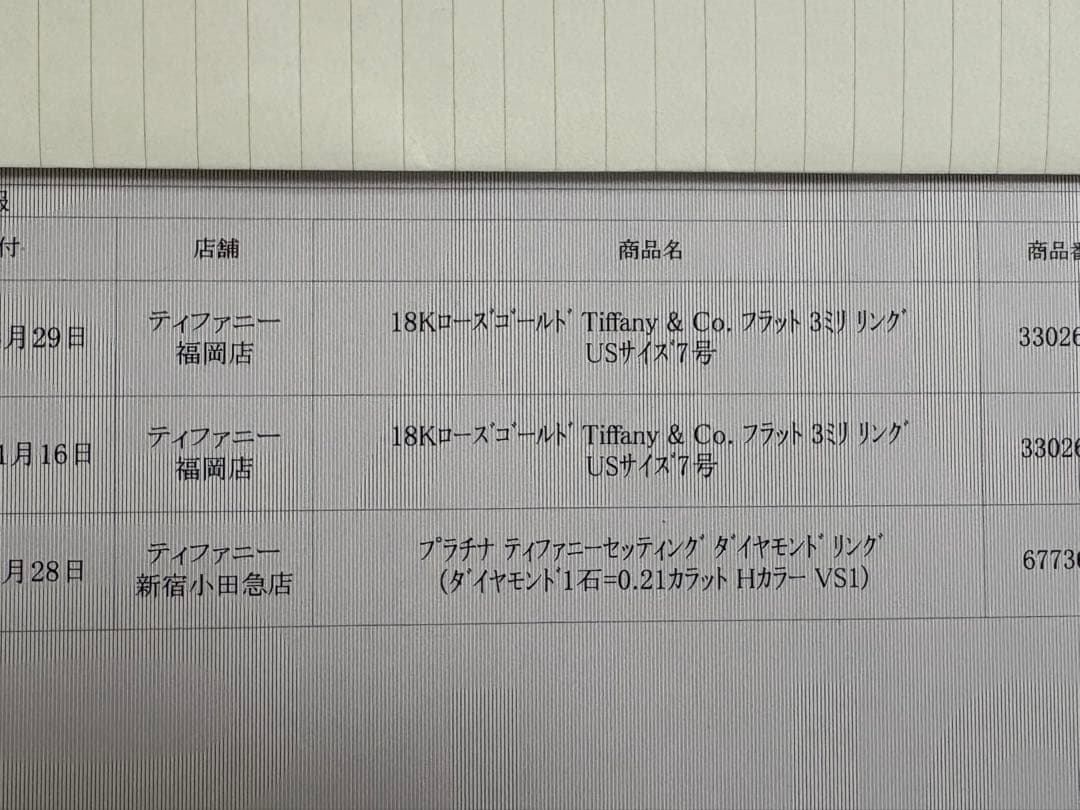 報
付 店舗 商品名 商品番
月29日 ティファニー 福岡店 18Kローズゴールド Tiffany & Co. フラット 3ミリ リング USサイズ7号 33026
1月16日 ティファニー 福岡店 18Kローズゴールド Tiffany & Co. フラット 3ミリ リング USサイズ7号 33026
月28日 ティファニー 新宿小田急店 プラチナ ティファニーセッティング ダイヤモンド リング (ダイヤモンド1石=0.21カラット Hカラー VS1) 67736